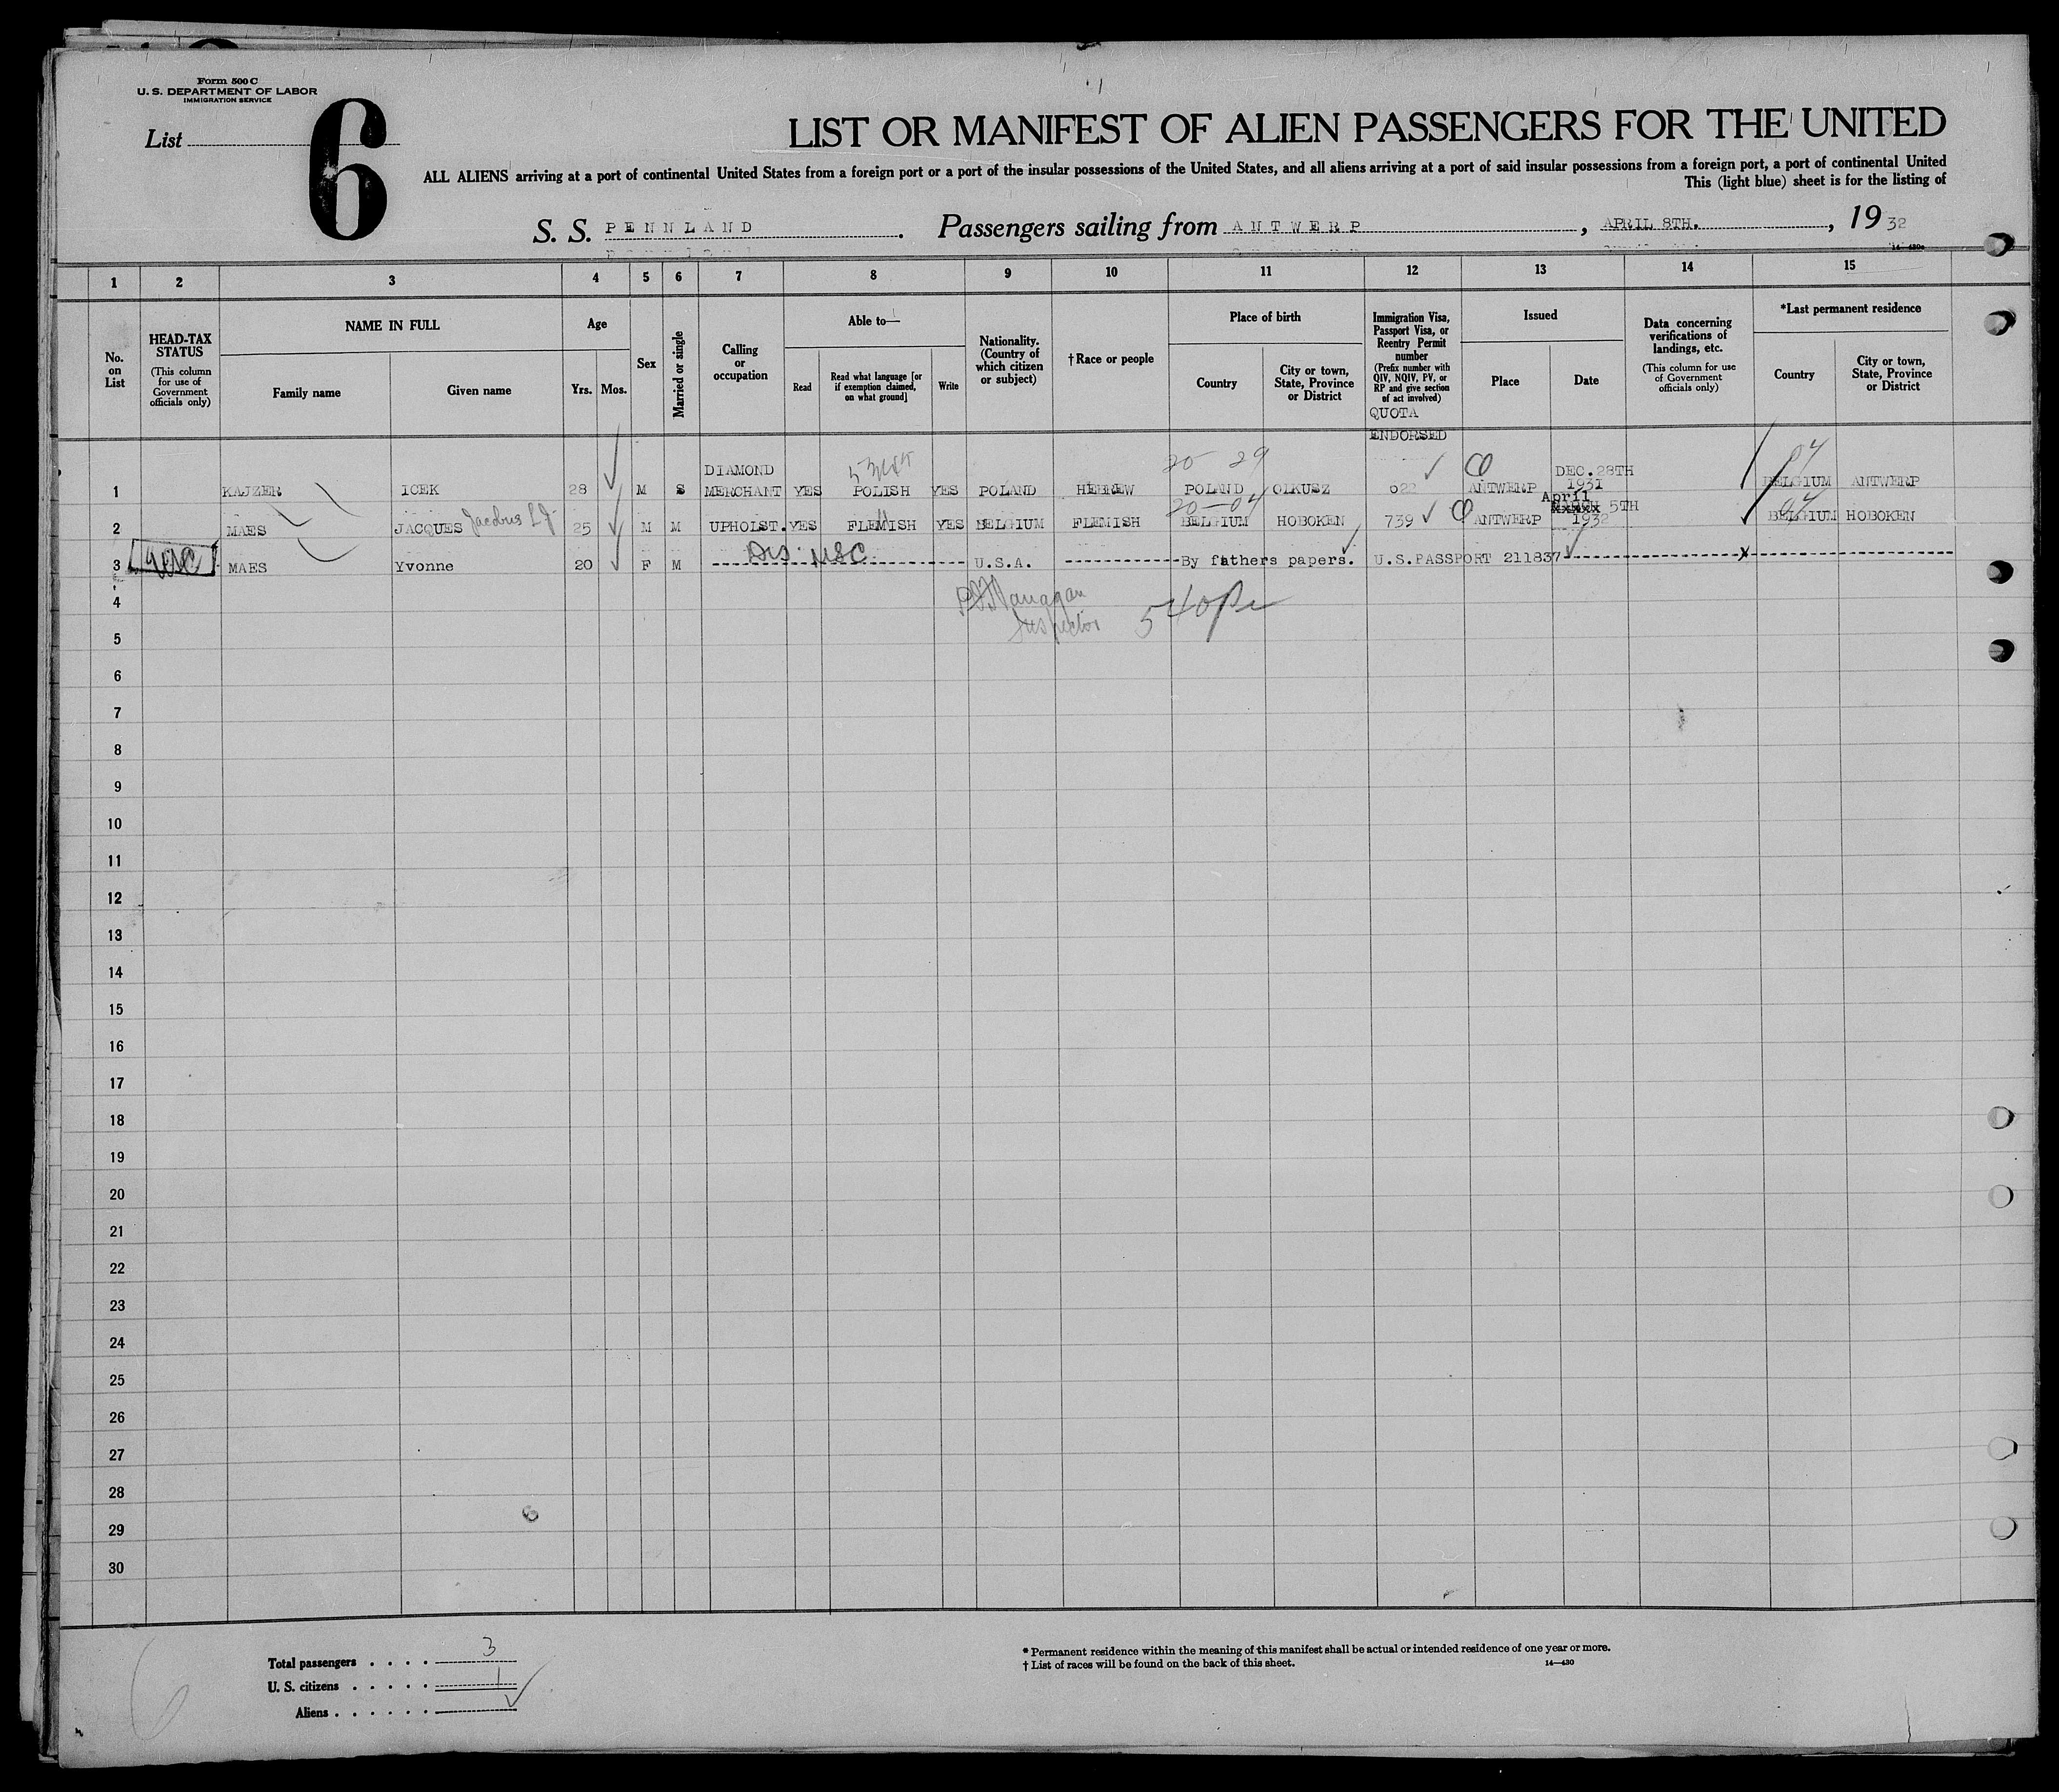 Form 500 C
U. S. DEPARTMENT OF LABOR
IMMIGRATION SERVICE
List 6
LIST OR MANIFEST OF ALIEN PASSENGERS FOR THE UNITED
ALL ALIENS arriving at a port of continental United States from a foreign port or a port of the insular possessions of the United States, and all aliens arriving at a port of said insular possessions from a foreign port, a port of continental United
This (light blue) sheet is for the listing of
S. S. PENNLAND. Passengers sailing from ANTWERP, APRIL 8TH., 1932
14—430a
1 2 3 4 5 6 7 8 9 10 11 12 13 14 15
No. on List
HEAD-TAX STATUS (This column for use of Government officials only)
NAME IN FULL
Family name Given name
Age
Yrs. Mos.
Sex
Married or single
Calling or occupation
Able to—
Read
Read what language [or if exemption claimed, on what ground]
Write
Nationality. (Country of which citizen or subject)
†Race or people
Place of birth
Country
City or town, State, Province or District
Immigration Visa, Passport Visa, or Reentry Permit number (Prefix number with QIV, NQIV, PV, or RP and give section of act involved)
QUOTA
ENDORSED
Issued
Place Date
Data concerning verifications of landings, etc. (This column for use of Government officials only)
*Last permanent residence
Country
City or town, State, Province or District
20 29 04
DIAMOND DEC.28TH
1 KAJZER ICEK 28 M S MERCHANT YES POLISH YES POLAND HEBREW POLAND OLKUSZ 622 ANTWERP 1931 BELGIUM ANTWERP
20-04 April 04
2 MAES JACQUES Jacobus L J 25 M M UPHOLST. YES FLEMISH YES BELGIUM FLEMISH BELGIUM HOBOKEN 739 ANTWERP 5TH 1932 BELGIUM HOBOKEN
3 USC MAES Yvonne 20 F M Dis. USC U.S.A. By fathers papers. U.S.PASSPORT 211837
4
Inspector
5
6
7
8
9
10
11
12
13
14
15
16
17
18
19
20
21
22
23
24
25
26
27
28
29
30
Total passengers . . . . 3
U. S. citizens . . . . . 1
Aliens . . . . . .
* Permanent residence within the meaning of this manifest shall be actual or intended residence of one year or more.
† List of races will be found on the back of this sheet.
14—430
6